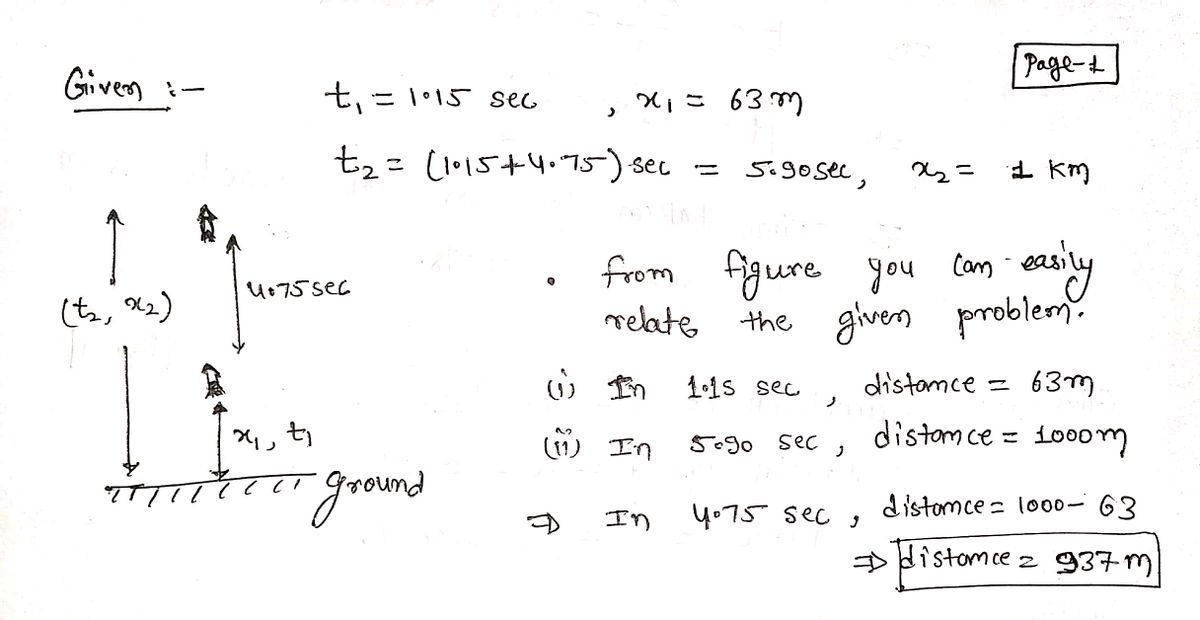 Page-1
Given :-
t₁ = 1.15 sec , x₁ = 63 m
t₂ = (1.15+4.75) sec = 5.90 sec, x₂ = 1 km
4.75 sec
(t₂, x₂)
x₁, t₁
ground
• from figure you can easily
relate the given problem.
(i) In 1.15 sec , distance = 63m
(ii) In 5.90 sec , distance = 1000m
⇒ In 4.75 sec , distance = 1000 - 63
⇒ distance = 937 m